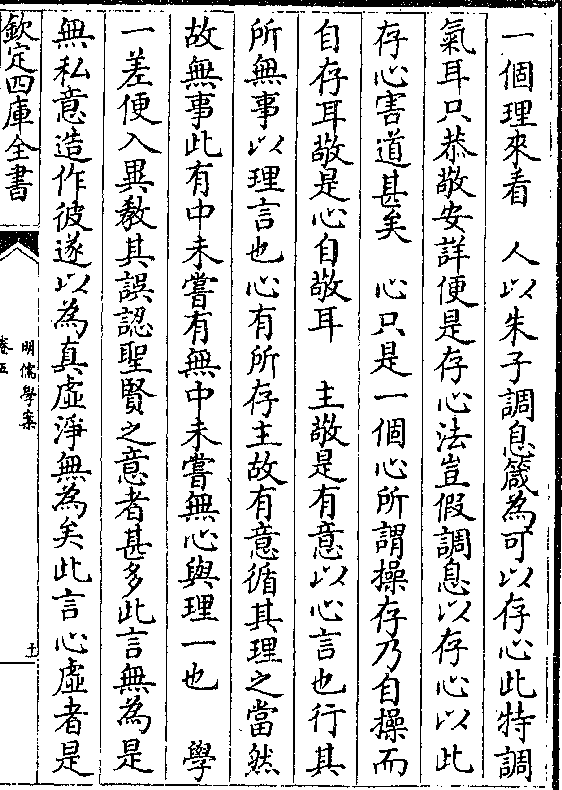 一個理來看　人以朱子調息箴為可以存心此特調
氣耳只恭敬安詳便是存心法豈假調息以存心以此
存心害道甚矣　心只是一個心所謂操存乃自操而
自存耳敬是心自敬耳　主敬是有意以心言也行其
所無事以理言也心有所存主故有意循其理之當然
故無事此有中未嘗有無中未嘗無心與理一也　學
一差便入異教其誤認聖賢之意者甚多此言無為是
無私意造作彼遂以為真虛淨無為矣此言心虛者是
欽定四庫全書
明儒學案
卷五